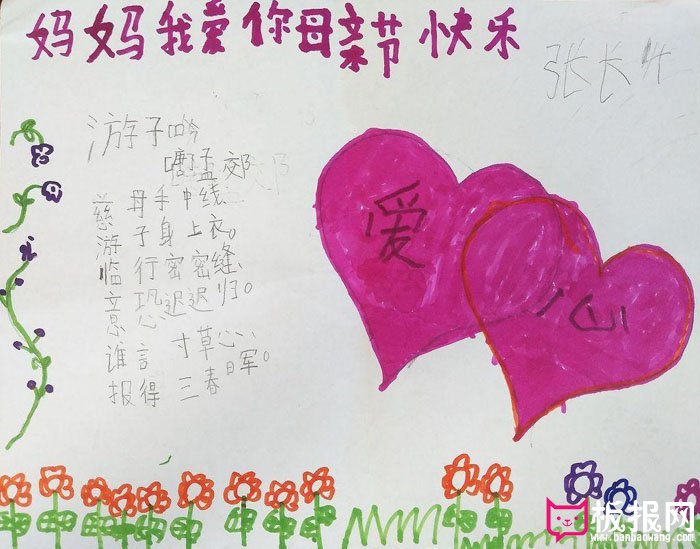 妈妈我爱你母亲节快乐
张长
游子吟
唐孟郊
慈母手中线
游子身上衣。
临行密密缝、
意恐迟迟归。
谁言寸草心、
报得三春晖。
爱
心
板报网
www.banbaowang.com